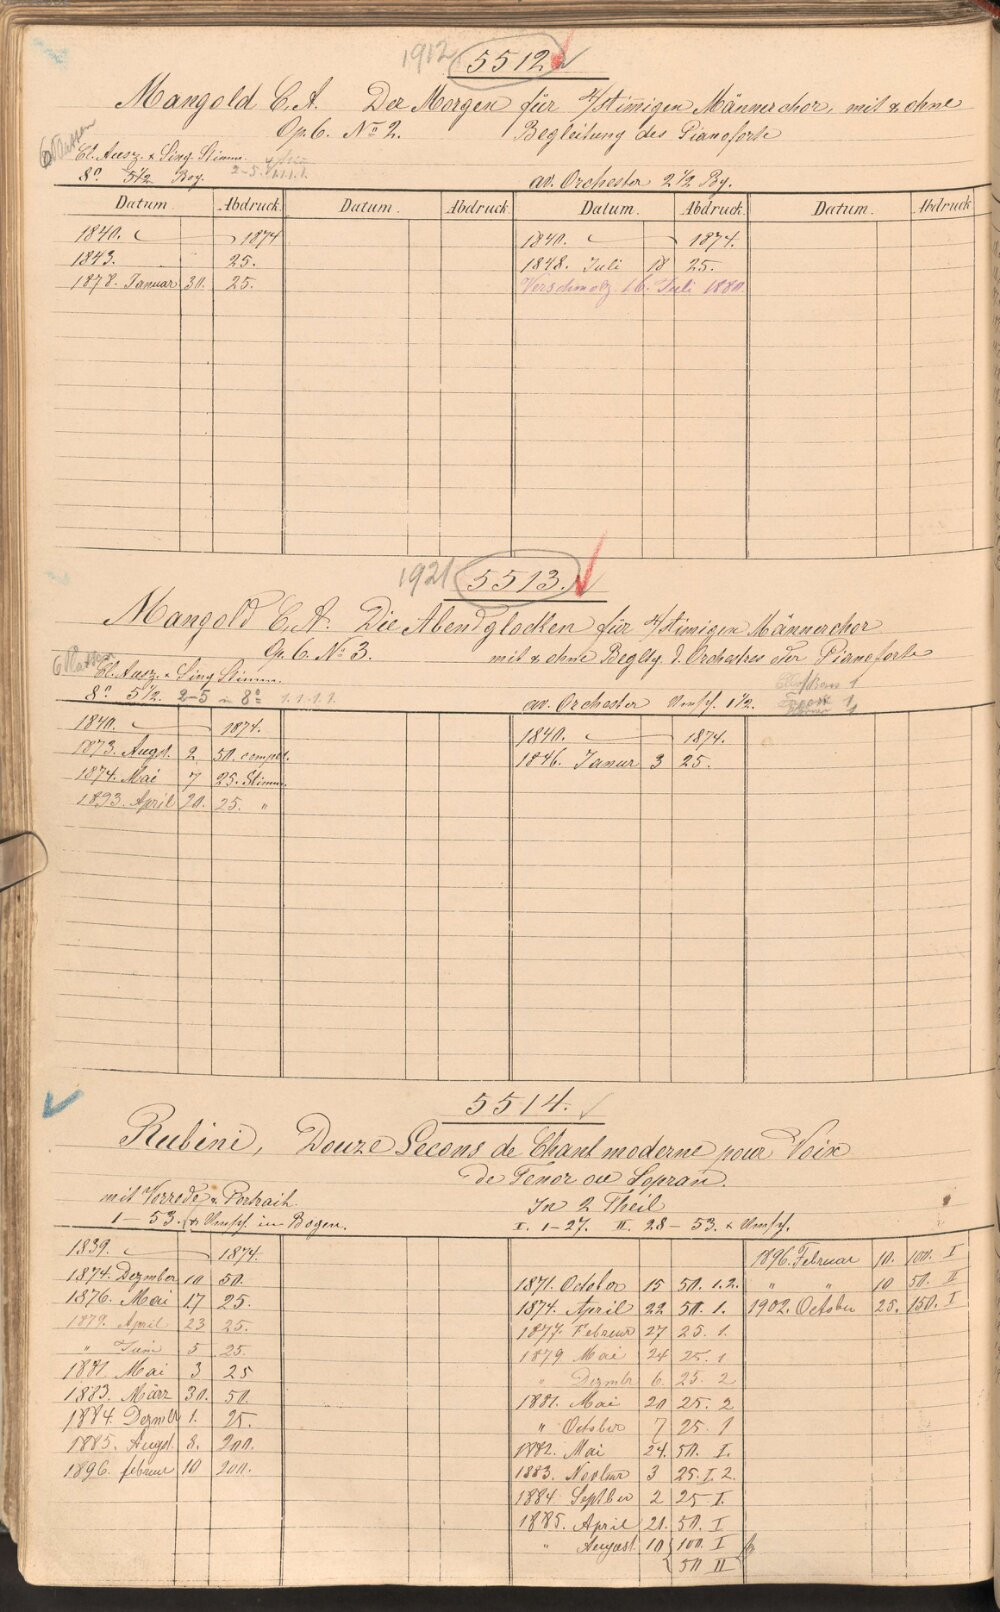 1912 5512
Mangold C. A. Der Morgen für 4/stimigen Männerchor, mit & ohne
Op. 6. No 2. Begleitung des Pianoforte
6 Platten
Cl. Ausz. & Sing. Stimm.
8o 5 1/2 Bog. 2-5. 1.1.1.1. av. Orchester 2 1/2 Bg.
Datum Abdruck Datum. Abdruck Datum. Abdruck Datum. Abdruck
1840. 1874 1840. 1874.
1843. 25. 1848. Juli 18 25.
1878. Januar 30. 25. Verschmolz. 16. Juli 1880
1921 5513.
Mangold C. A. Die Abendglocken für 4/stimigen Männerchor
Op. 6. No 3. mit & ohne Beglty d. Orchestres oder Pianoforte
6 Platten
Cl. Ausz. & Sing Stimm.
8o 5 1/2. 2-5 in 8o 1.1.1.1. av. Orchester Umsch. 1 1/2.
1840. 1874. 1840. 1874.
1873. Augt. 2 50. complt. 1846. Janur 3 25.
1874. Mai 7 25. Stimm.
1893. April 20. 25. "
5514.
Rubini, Douze Lecons de Chant moderne pour Voix
de Tenor ou Sopran.
mit Vorrede & Portrait In 2 Theil
1-53. & Umsch. in Bogen. I. 1-27. II. 28-53. & Umsch.
1839. 1874. 1896. Februar 10. 100. I
1874. Dezmber 10 50. 1871. October 15 50. 1.2. " " 10 50. II
1876. Mai 17 25. 1874. April 22 50. 1. 1902. October 25. 150. I
1879. April 23 25. 1877. Februar 27 25. 1.
" Juni 5 25. 1879 Mai 24 25. 1
1881. Mai 3 25 " Dezmbr 6 25. 2
1883. März 30. 50. 1881. Mai 20 25. 2
1884. Dezmbr 1. 25. " October 7 25. 1
1885. Augst 8. 200. 1882. Mai 24. 50. I.
1896. februar 10 200. 1883. Novbmr 3 25. I. 2.
1884 Septber 2 25 I.
1885. April 21. 50. I
" August 10 100. I
50 II